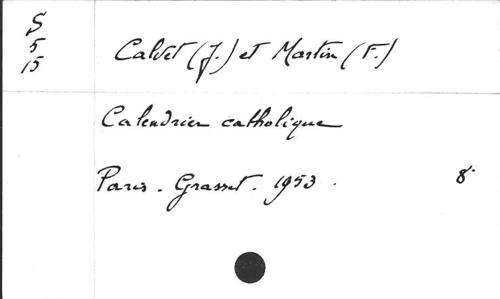 S
5
15
Calvet (J.) et Martin (F.)
Calendrier catholique
Paris. Grasset. 1953. 8°